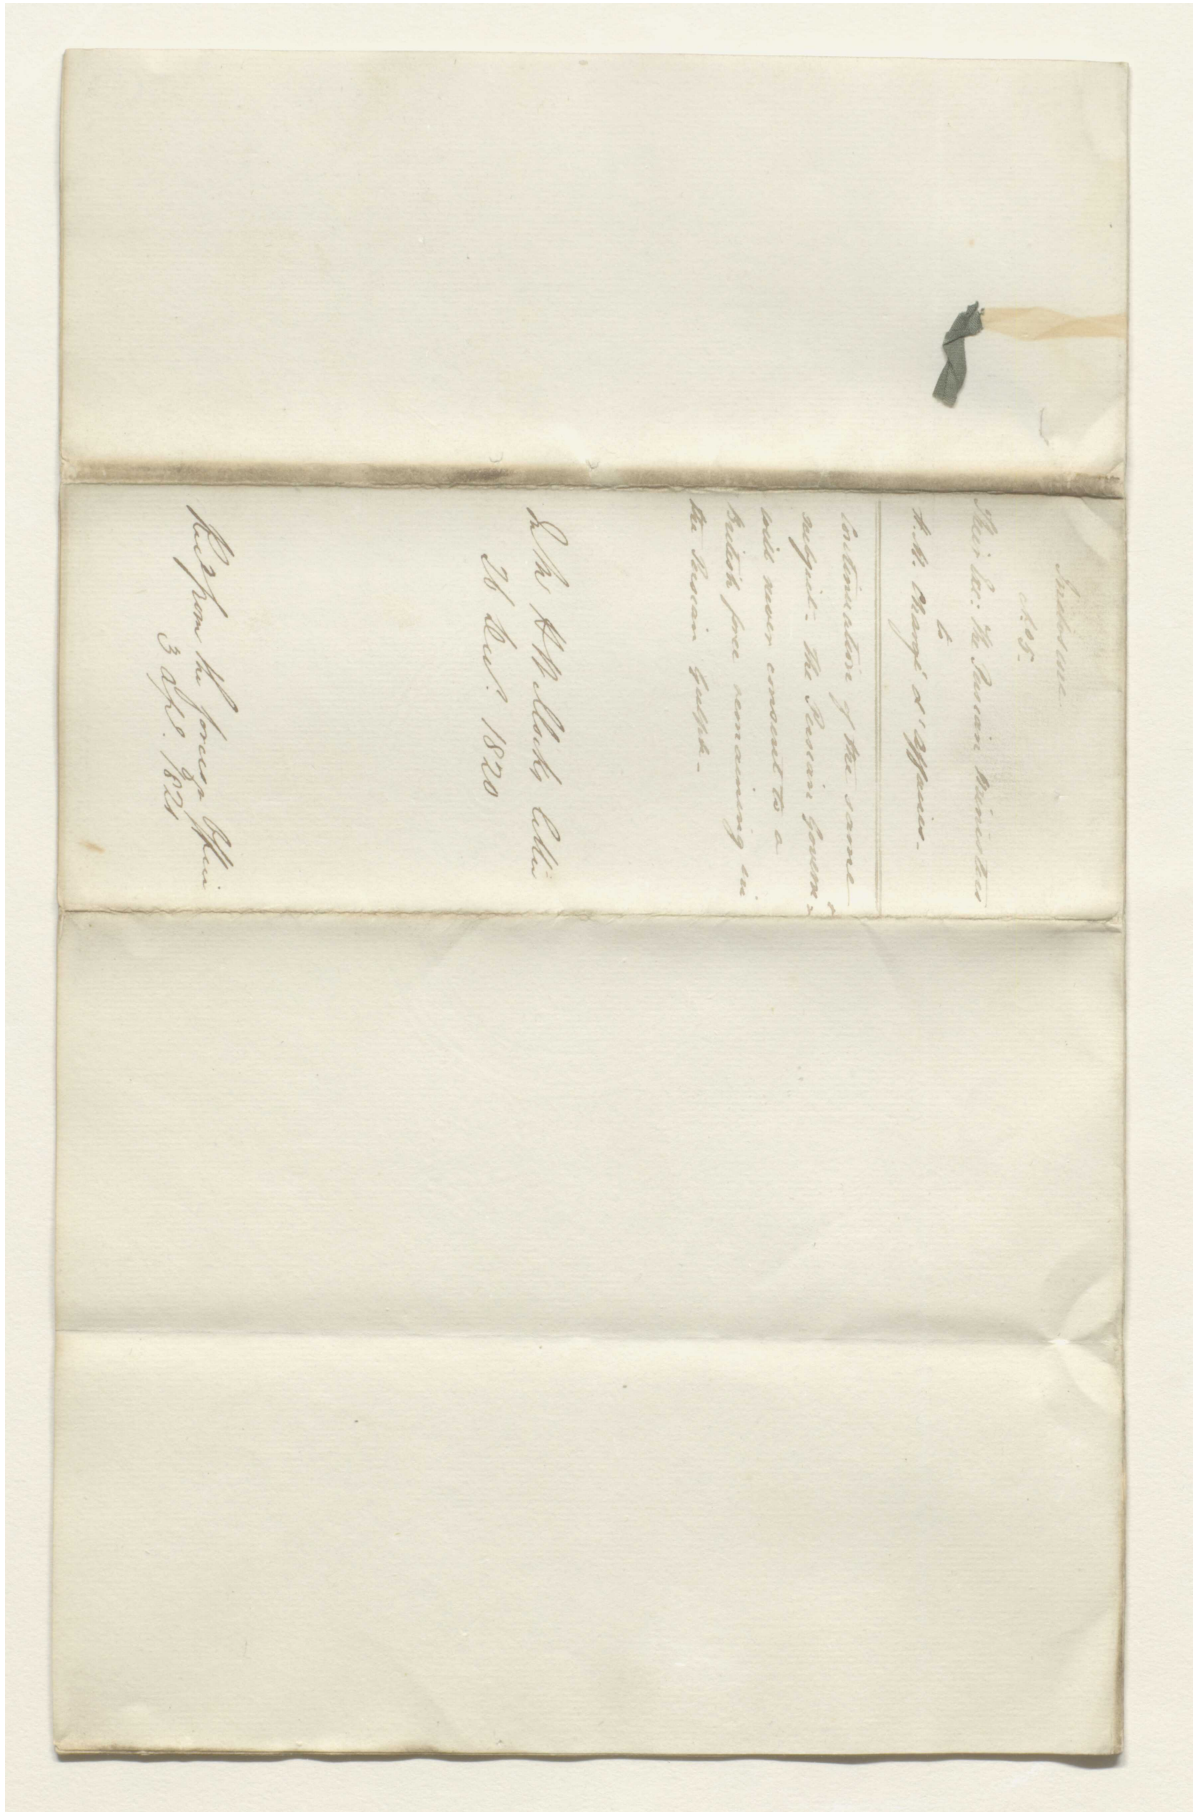 Inclosure
No. 5.
Their Exc: The Persian Ministers
to
H. M. Chargé d'Affaires.
Continuation of the same
subject. The Persian Governt
will never consent to a
British force remaining in
the Persian Gulph.
In Mr H Willock's Letter
26 Decr. 1820
Recd from the Foreign Office
3 Apl. 1821